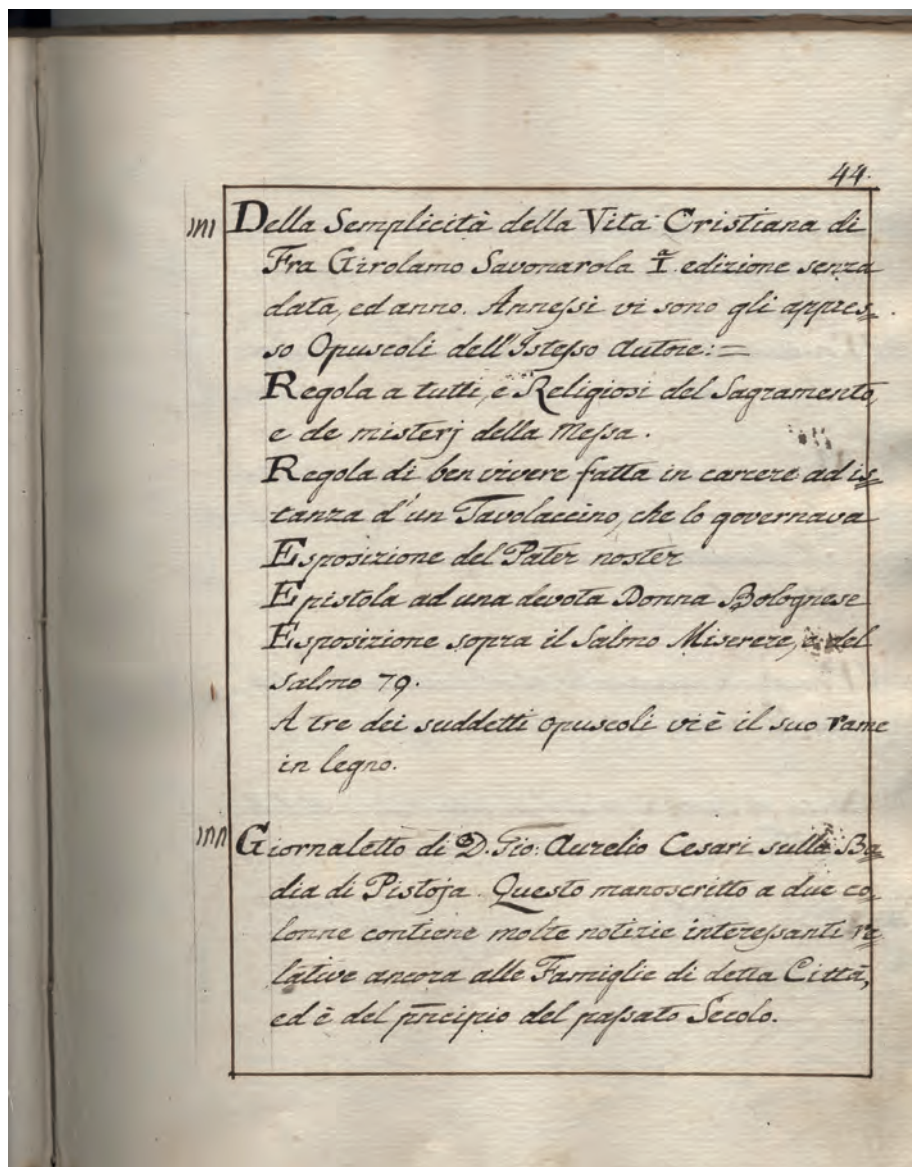 44.
Della Semplicità della Vita Cristiana di
Fra Girolamo Savonarola I.ª edizione senza
data, ed anno. Annessi vi sono gli appres=
so Opuscoli dell'Istesso Autore:=
Regola a tutti, e Religiosi del Sagramento,
e de misterj della Messa.
Regola di ben vivere fatta in carcere ad is=
tanza d'un Tavolaccino, che lo governava
Esposizione del Pater noster
Epistola ad una devota Donna Bolognese
Esposizione sopra il Salmo Miserere, e del
Salmo 79.
A tre dei suddetti opuscoli vi è il suo rame
in legno.
Giornaletto di D. Gio: Aurelio Cesari sulla Ba=
dia di Pistoja. Questo manoscritto a due co=
lonne contiene molte notizie interessanti re=
lative ancora alle Famiglie di detta Città,
ed è del pñcipio del passato Secolo.